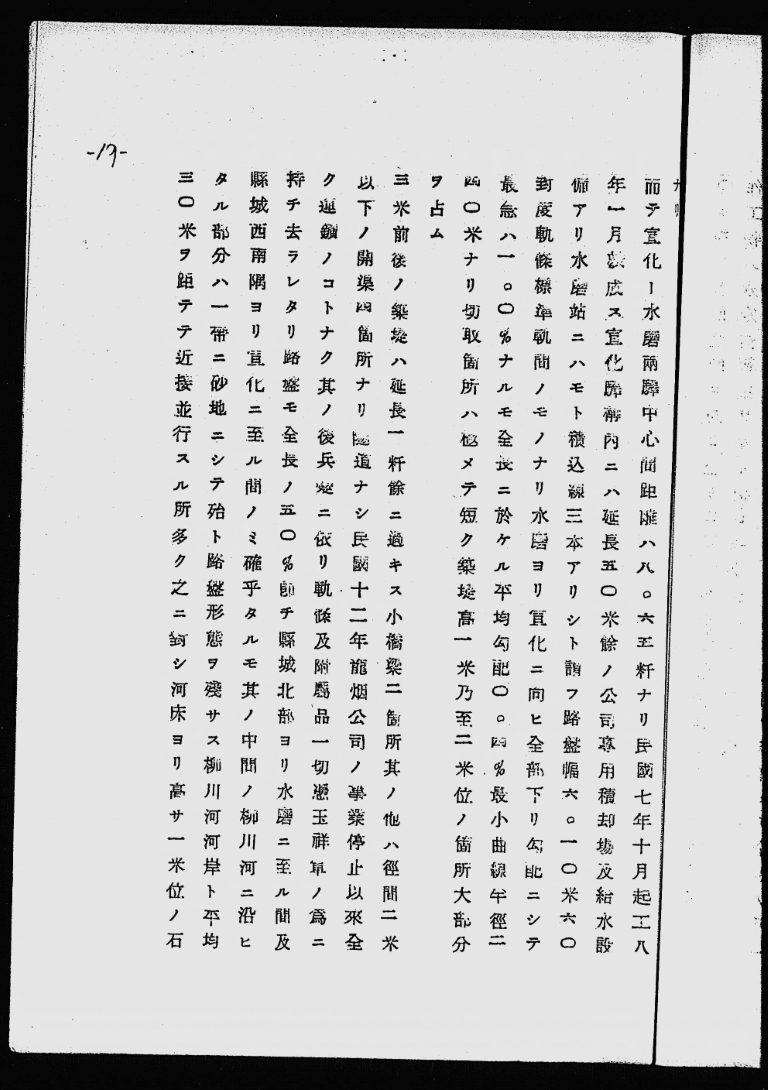 而テ宣化ー水磨兩驛中心間距離ハ八。六五粁ナリ民國七年十月起工八
年一月竣成ス宣化驛構內ニハ延長五〇米餘ノ公司專用積卸場及給水設
備アリ水磨站ニハモト積込線三本アリシト謂フ路盤幅六。一〇米六〇
封度軌條標準軌間ノモノナリ水磨ヨリ宣化ニ向ヒ全部下リ勾配ニシテ
最急ハ一。〇%ナルモ全長ニ於ケル平均勾配〇。四%最小曲線半徑二
四〇米ナリ切取箇所ハ極メテ短ク築堤高一米乃至二米位ノ箇所大部分
ヲ占ム
三米前後ノ築堤ハ延長一粁餘ニ過キス小橋梁二箇所其ノ他ハ徑間二米
以下ノ開渠四箇所ナリ隧道ナシ民國十二年龍烟公司ノ事業停止以來全
ク運鑛ノコトナク其ノ後兵變ニ依リ軌條及附屬品一切馮玉祥軍ノ爲ニ
持チ去ラレタリ路盤モ全長ノ五〇%卽チ縣城北部ヨリ水磨ニ至ル間及
縣城西南隅ヨリ宣化ニ至ル間ノミ確乎タルモ其ノ中間ノ柳川河ニ沿ヒ
タル部分ハ一帶ニ砂地ニシテ殆ト路盤形態ヲ殘サス柳川河河岸ト平均
三〇米ヲ距テテ近接並行スル所多ク之ニ對シ河床ヨリ高サ一米位ノ石
-19-